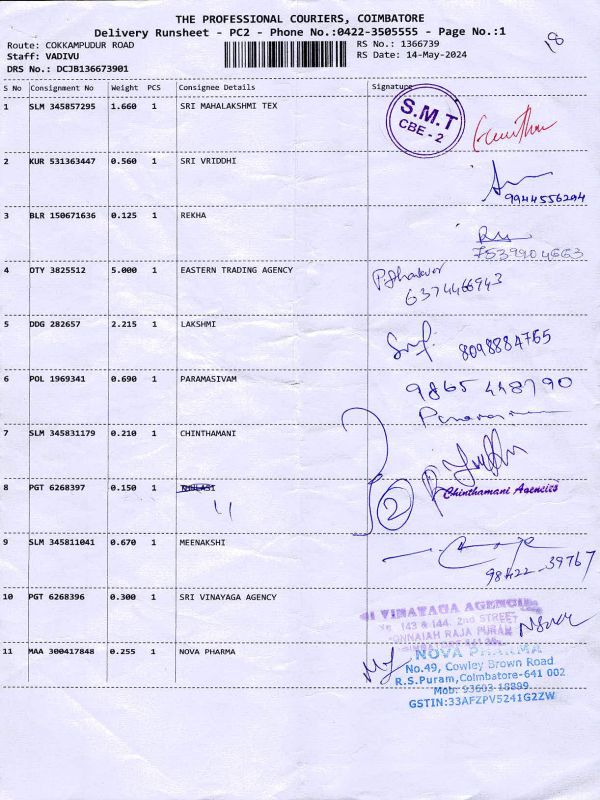 THE PROFESSIONAL COURIERS, COIMBATORE
Delivery Runsheet - PC2 - Phone No.:0422-3505555 - Page No.:1
18
Route: COKKAMPUDUR ROAD
Staff: VADIVU
DRS No.: DCJB136673901
RS No.: 1366739
RS Date: 14-May-2024
S No Consignment No Weight PCS Consignee Details Signature
1 SLM 345857295 1.660 1 SRI MAHALAKSHMI TEX
S.M.T
CBE - 2
2 KUR 531363447 0.560 1 SRI VRIDDHI
9944556204
3 BLR 150671636 0.125 1 REKHA
7539904663
4 OTY 3825512 5.000 1 EASTERN TRADING AGENCY
6374466943
5 DDG 282657 2.215 1 LAKSHMI
8098884755
6 POL 1969341 0.690 1 PARAMASIVAM
9865 448790
7 SLM 345831179 0.210 1 CHINTHAMANI
8 PGT 6268397 0.150 1
2
Chinthamani Agencies
9 SLM 345811041 0.670 1 MEENAKSHI
98422-39767
10 PGT 6268396 0.300 1 SRI VINAYAGA AGENCY
VINAYAGA AGENCIES
143 & 144, 2nd STREET
PONNAIAH RAJA PURAM
11 MAA 300417848 0.255 1 NOVA PHARMA
NOVA PHARMA
No.49, Cowley Brown Road
R.S.Puram, Coimbatore-641 002
Mob: 93603 18899
GSTIN:33AFZPV5241G2ZW